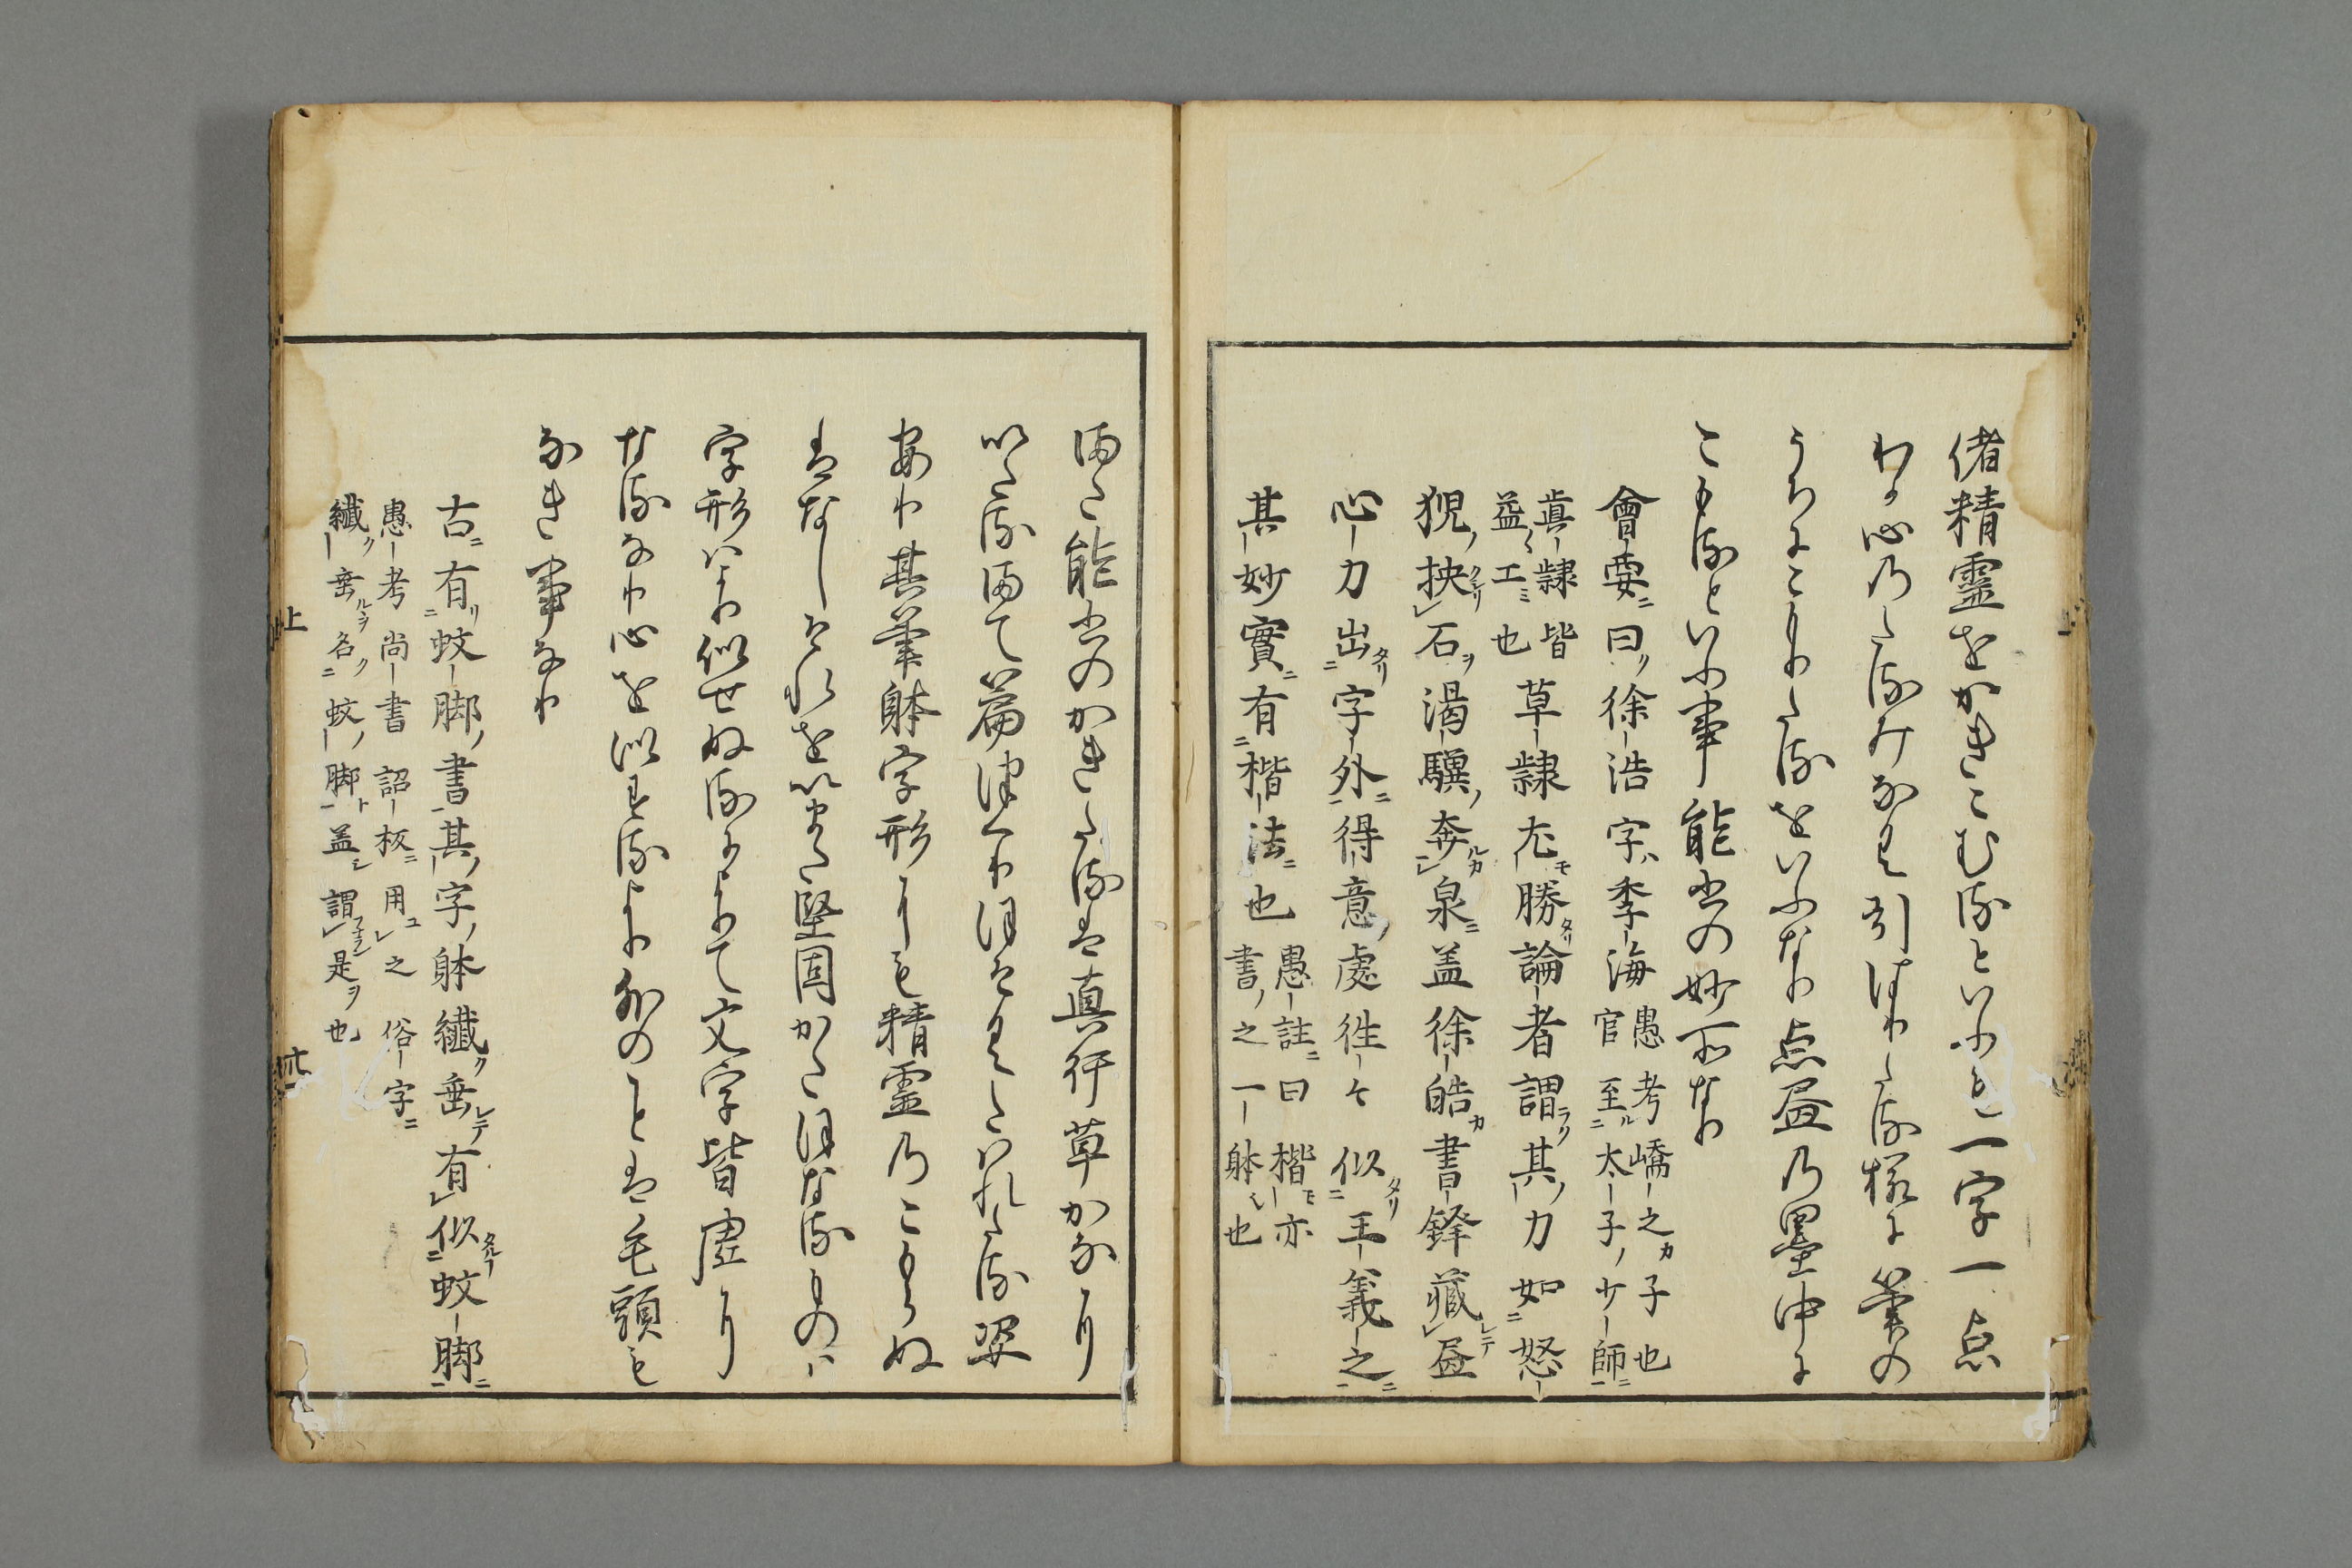 偖精霊をかきこむるといふも一字一点
わか心のたるみなく引はりたる様に筆の
うちにこもりたるをいふなり点畫の墨中に
こもるといふ事能書の妙所なり
會要ニ曰ク徐浩字ハ季海愚考嶠之カ子也
官至ル太子ノ少師ニ
眞隷皆
益〻工ミ也草隷尤モ勝タリ論者謂ラク其ノ力如怒
猊ノ抉クジリ石ヲ渇驥ノ奔ルカ泉ニ蓋徐皓カ書鋒藏レテ畫
心力出タリ字外ニ得意ノ處徃々似タリ王羲之ニ
其妙實ニ有楷法ニ也愚註ニ曰楷モ亦
書ノ之一躰也
又能書のかきたるは真行草かなにり
いたるまて篇つくりはなれたる姿
あり其筆躰字形にも精霊のこもらぬ
はなしそれをいまた堅固かたはなるものハ
字形はより似せぬるによりて文字皆虚に
なるなり心を似するより外のことは毛頭も
なき事なり
古ニ有リ蚊脚ノ書其ノ字ノ躰纖ク垂レテ有似タルヿ蚊脚ニ
愚考尚書詔板ニ用ユ之俗字ニ
纖ク垂ルヲ名ク蚊ノ脚ト盖シ謂フナラン是ヲ也
上